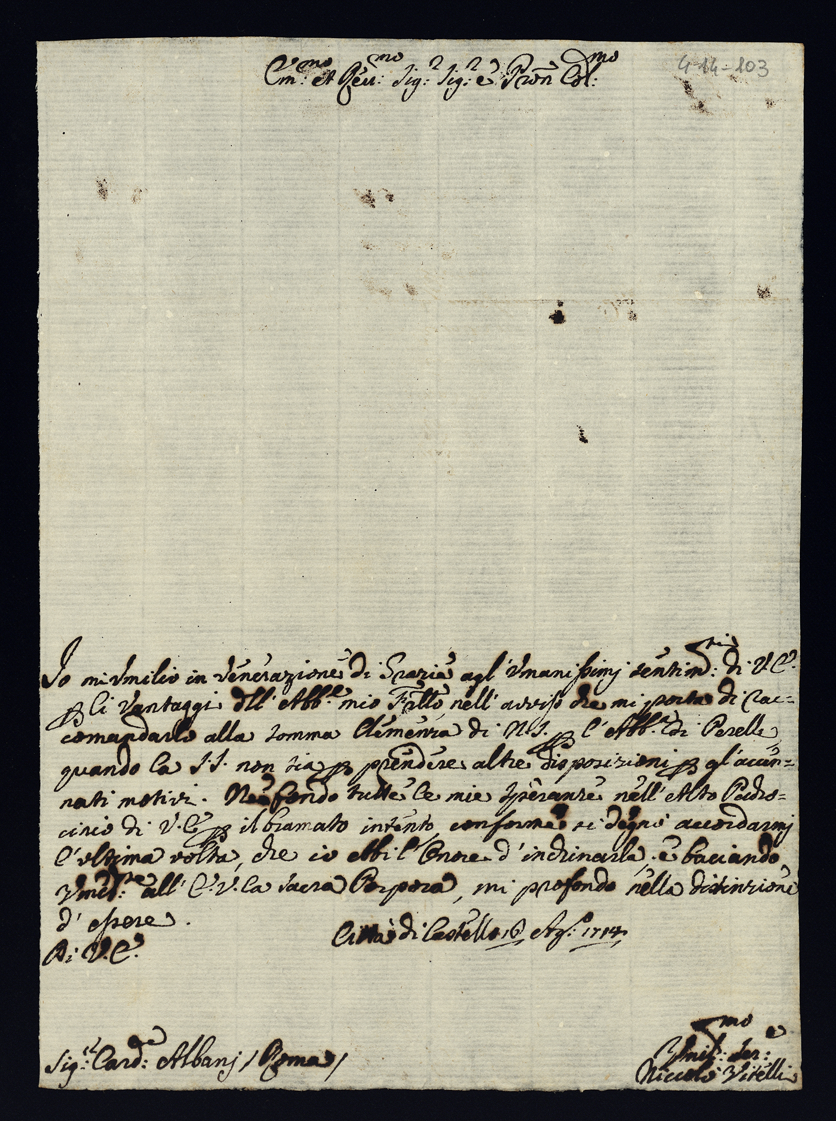 Em.mo et Reu.mo Sig.r Sig.r e Pron Col.mo
4-14-103
Io mi vmilio in venerazione di Grazie agl'vmanissimj sentim.ti di V.E.
p li vantaggi dell'Abb.e mio Fratto, nell'avviso che mi porta di rac=
comandarlo alla somma Clemenza di N.S. p l'Abb.a di Perelli
quando la S.S. non sia p prendere altre disposizioni p gl'accen=
nati motivi. fondo tutte le mie speranze nell'Alto Padro=
cinio di V.E. p il bramato intento, conforme si degnò accordarmj
l'vltima volta, che io ebbi l'Onore d'inchinarla, e baciando
Vmil.te all'E.V. la Sacra Porpora, mi profondo nella distinzione
d'essere.
Di V.E.
Città di Castello 16 Ag.o 1714
Sig.r Card.e Albanj / Roma /
Vmil.mo Ser.e
Niccolò Vitelli